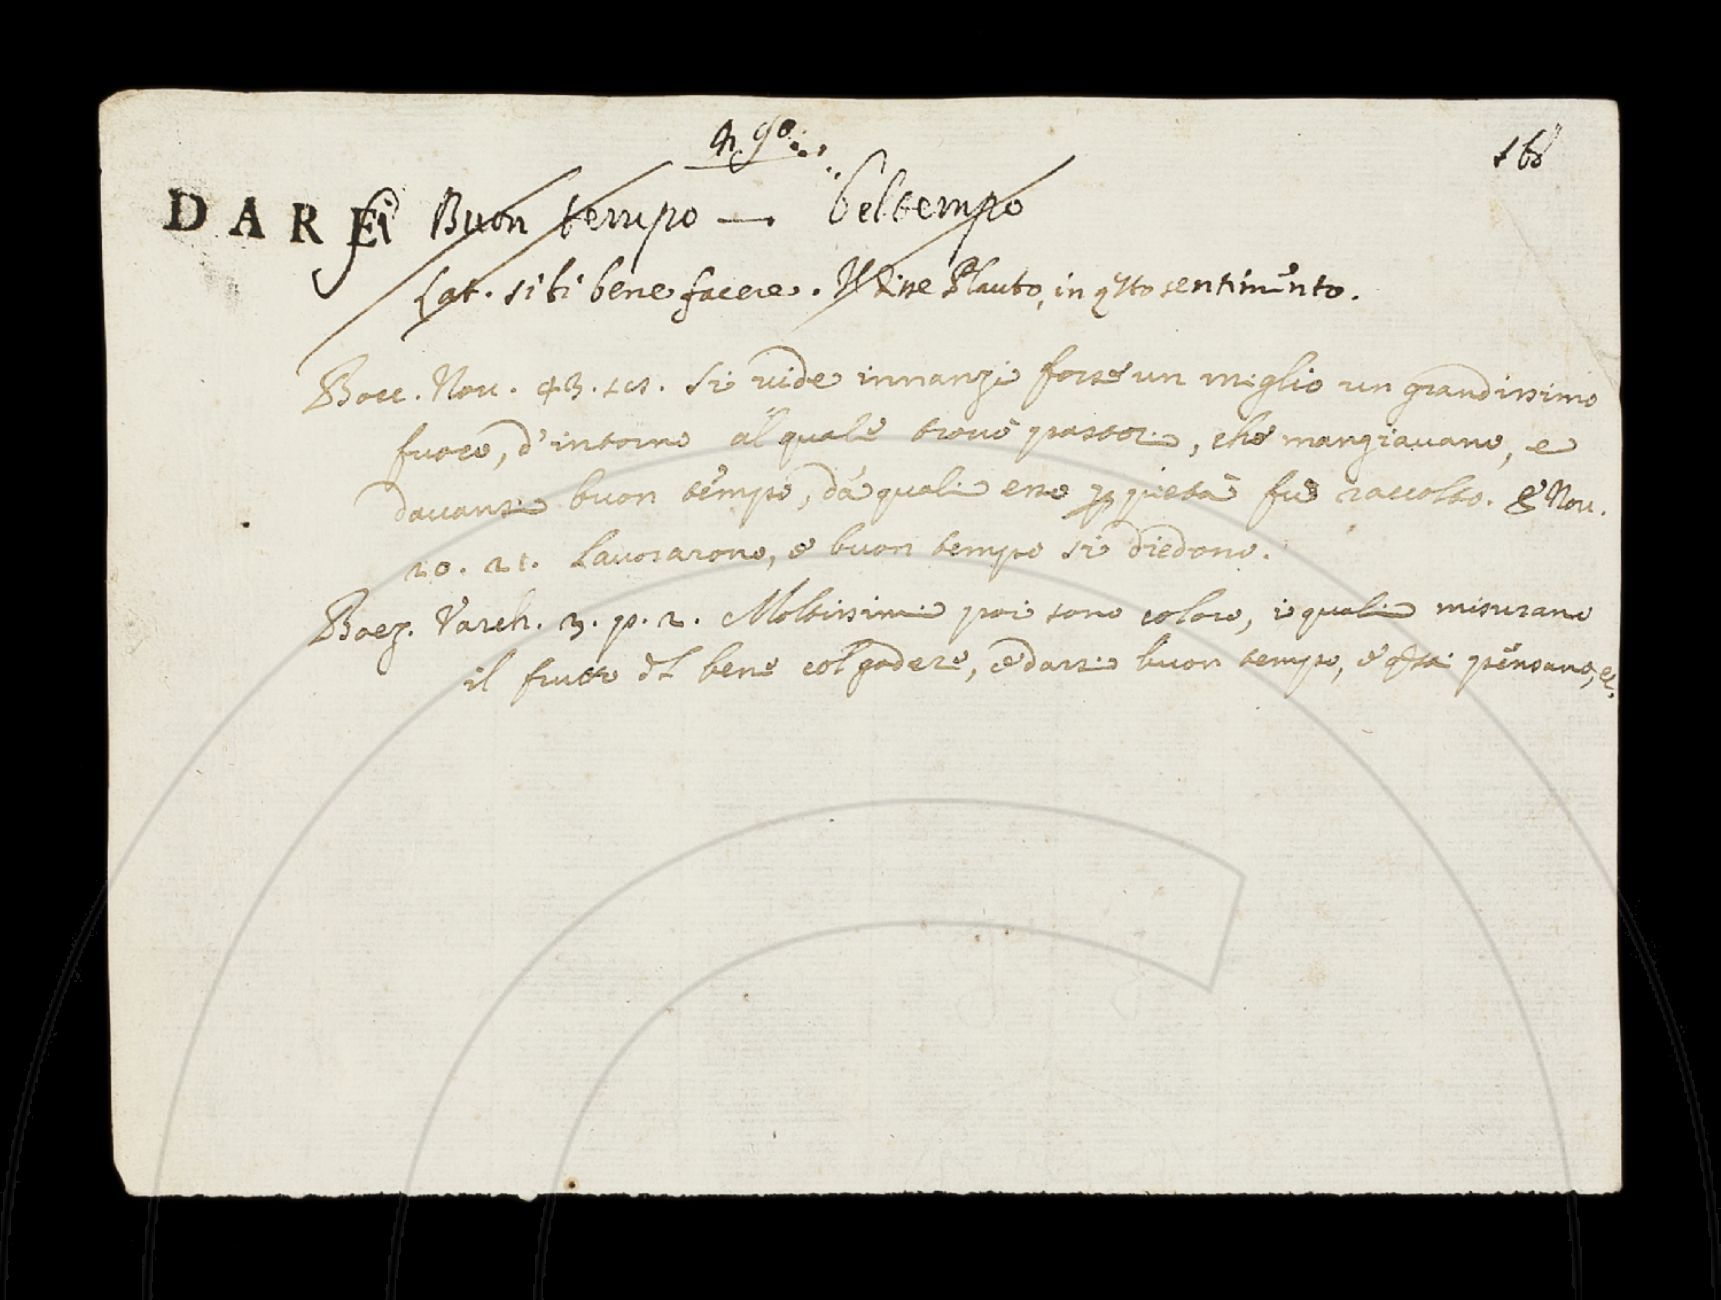 168
DARsi Buon tempo — beltempo
Lat. sibi bene facere. Disse Plauto, in qsto sentimēnto.
Bocc. Nov. 43. 15. Si vide innanzi forse un miglio un grandissimo
fuoco, d'intorno al quale trovò pastori, che mangiavano, e
davansi buon tempo, da quali esso p pietà fu raccolto. E Nov.
20. 21. Lavorarono, e buon tempo si diedono.
Boez. Varch. 3. p. 2. Moltissimi poi sono coloro, i quali misurano
il frutto dl bene col godere, e darsi buon tempo, e qsti pensano, ec.